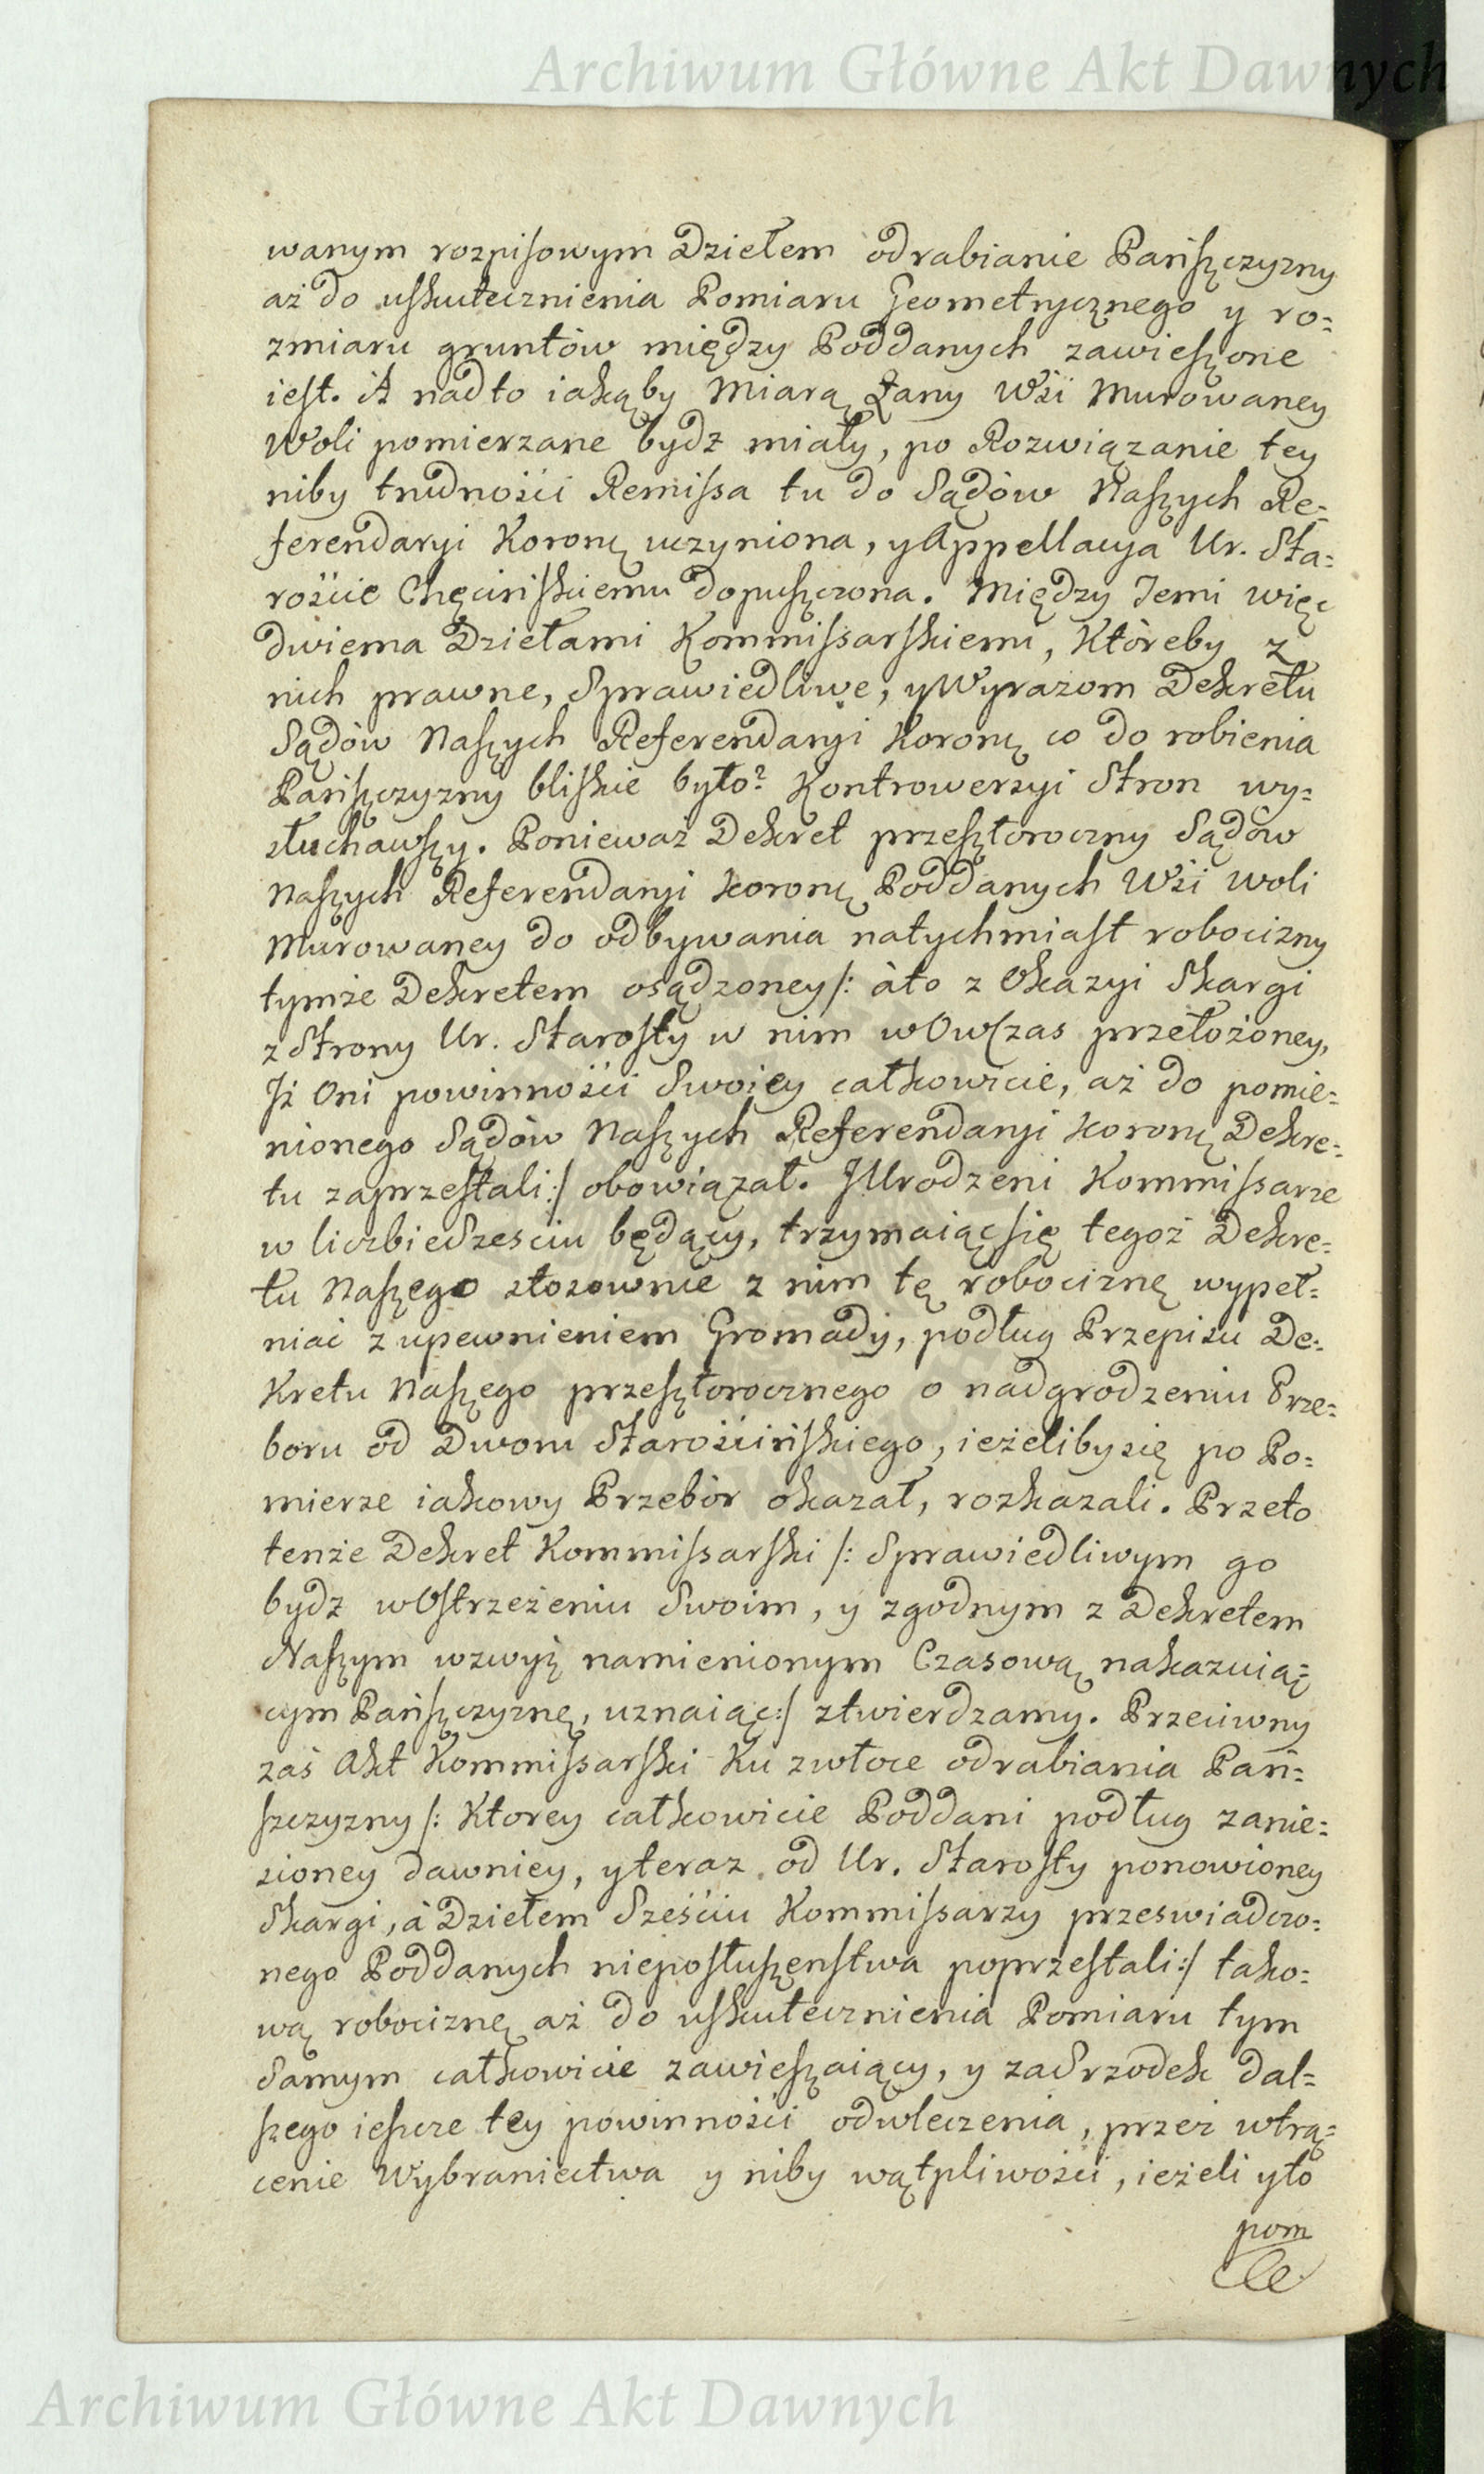 Archiwum Główne Akt Dawnych
wanym rozpisowym Dziełem odrabianie Pańszczyzny
aż do uskutecznienia Pomiaru Geometrycznego y ro=
zmiaru gruntów między Poddanych zawieszone
iest. A nadto iakąby Miarą Łany Wsi Murowaney
Woli pomierzane bydz miały, po Rozwiązanie tey
niby trudności Remissa tu do Sądów Naszych Re=
ferendaryi Koronę uczyniona, y Appellacya Ur. Sta=
roście Chęcińskiemu dopuszczona. Między Temi więc
dwiema Dziełami Kommissarskiemi, Któreby z
nich prawne, Sprawiedliwe, y Wyrazom Dekretu
Sądów Naszych Referendaryi Koronę co do robienia
Pańszczyzny bliskie było? Kontrowersyi Stron wy=
słuchawszy. Ponieważ Dekret przeszłoroczny Sądów
Naszych Referendaryi Koronę Poddanych Wsi Woli
Murowaney do odbywania natychmiast robocizny
tymże Dekretem osądzoney /: àto z Okazyi Skargi
z Strony Ur. Starosty w nim wOwczas przełożoney,
Iż Oni powinności Swoiey całkowicie, aż do pomie=
nionego Sądów Naszych Referendaryi Koronę Dekre=
tu zaprzestali :/ obowiązał. J Urodzeni Kommissarze
w liczbie Szesciu będący, trzymaiąc się tegoż Dekre=
tu Naszego stosownie z nim tę robociznę wypeł=
niać z upewnieniem Gromady, podług Przepisu De=
Kretu Naszego przeszłorocznego o nadgrodzeniu Prze=
boru od Dworu Starościńskiego, ieżeliby się po Po=
mierze iakowy Przebòr okazał, rozkazali. Przeto
tenże Dekret Kommissarski /: Sprawiedliwym go
bydz wOstrzeżeniu Swoim, y zgodnym z Dekretem
Naszym wzwyż namienionym Czasową nakazuią=
cym Pańszczyznę, uznaiąc :/ ztwierdzamy. Przeciwny
zaś Akt Kommissarski Ku zwłoce odrabiania Pań=
szczyzny /: Ktorey całkowicie Poddani podług zanie=
sioney dawniey, y teraz od Ur. Starosty ponowioney
Skargi, à Dziełem Sześciu Kommissarzy przeswiadczo=
nego Poddanych nieposłuszenstwa poprzestali :/ tako=
wą robociznę aż do uskutecznienia Pomiaru tym
Samym całkowicie zawieszaiący, y zaSrzodek dal=
szego ieszcze tey powinności odwleczenia, przez wtrą=
cenie Wybraniectwa y niby wątpliwości, ieżeli yto
pom
Archiwum Główne Akt Dawnych